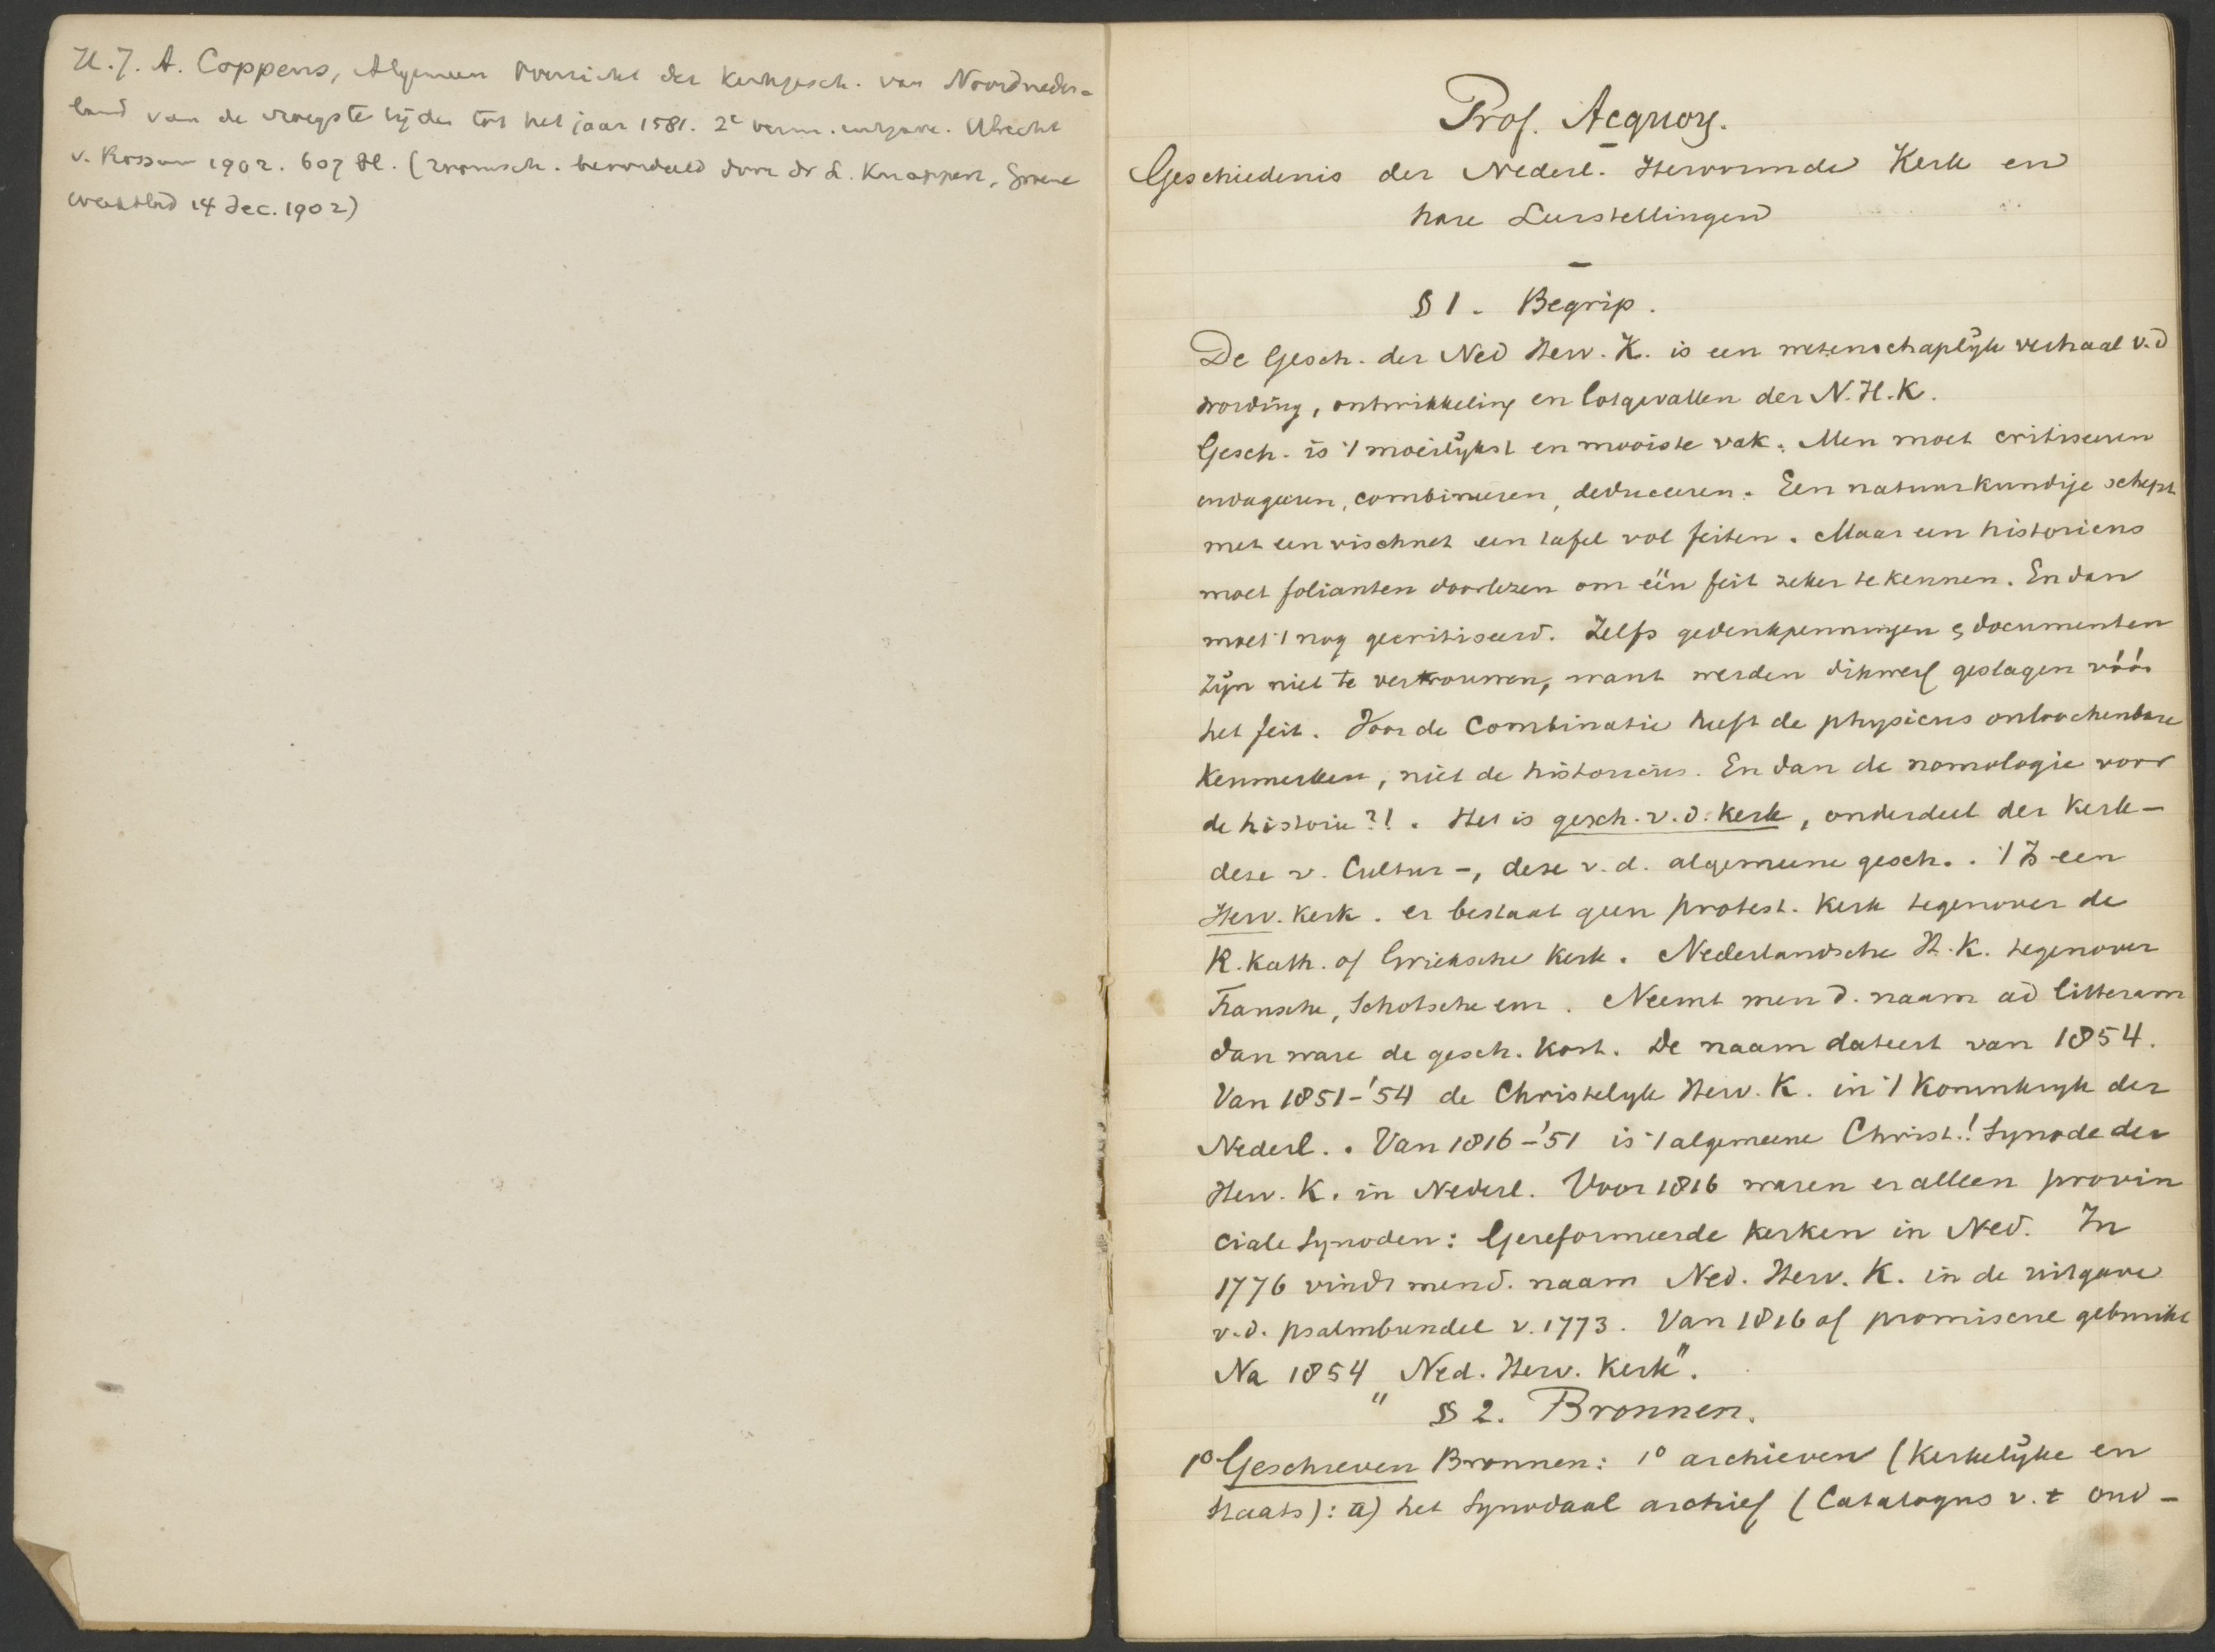 H. J. A. Coppens, Algemeen Overzicht der Kerkgesch. van Noordneder-
land van de vroegste tijden tot het jaar 1581. 2e verm. uitgave. Utrecht
v. Rossum 1902. 607 Bl. (roomsch. beoordeeld door dr L. Knappert, Groene
weekblad 14 Dec. 1902)
Prof. Acquoy.
Geschiedenis der Nederl. Hervormde Kerk en
hare Leerstellingen
§ 1. Begrip.
De Gesch. der Ned Herv. K. is een wetenschaplijk verhaal v.d
wording, ontwikkeling en lotgevallen der N.H.K.
Gesch. is 't moeilijkst en mooiste vak. Men moet critiseeren
combineeren, deduceeren. Een natuurkundige schept
met een vischnet een tafel vol feiten. Maar een historicus
moet folianten doorlezen om één feit zeker te kennen. En dan
moet 't nog gecritiseerd. Zelfs gedenkpenningen & documenten
zijn niet te vertrouwen, want werden dikwerf geslagen vóór
het feit. Voor de Combinatie heeft de physicus onloochenbare
Kenmerken, niet de historicus. En dan de nomologie voor
de historie?!. Het is gesch. v.d. Kerk, onderdeel der Kerk-
deze v. Cultuur-, deze v.d. algemeene gesch.. 't Is een
Herv. Kerk. er bestaat geen protest. Kerk tegenover de
R. Kath. of Grieksche Kerk. Nederlandsche H.K. tegenover
Fransche, Schotsche enz. Neemt men d. naam ad litteram
dan ware de gesch. kort. De naam dateert van 1854.
Van 1851-'54 de Christelyk Herv. K. in 't Koninkryk der
Nederl.. Van 1816-'51 is 't algemeene Christ.! Synode der
Herv. K. in Nederl. Voor 1816 waren er alleen provin
ciale Synoden: Gereformeerde Kerken in Ned. In
1776 vindt men d. naam Ned. Herv. K. in de uitgave
v.d. psalmbundel v. 1773. Van 1816 af promiscue gebruikt
Na 1854 „Ned. Herv. Kerk".
§ 2. Bronnen.
1° Geschreven Bronnen: 1° archieven (Kerkelijke en
Staats): a) het Synodaal archief (Catalogus v. t oud-